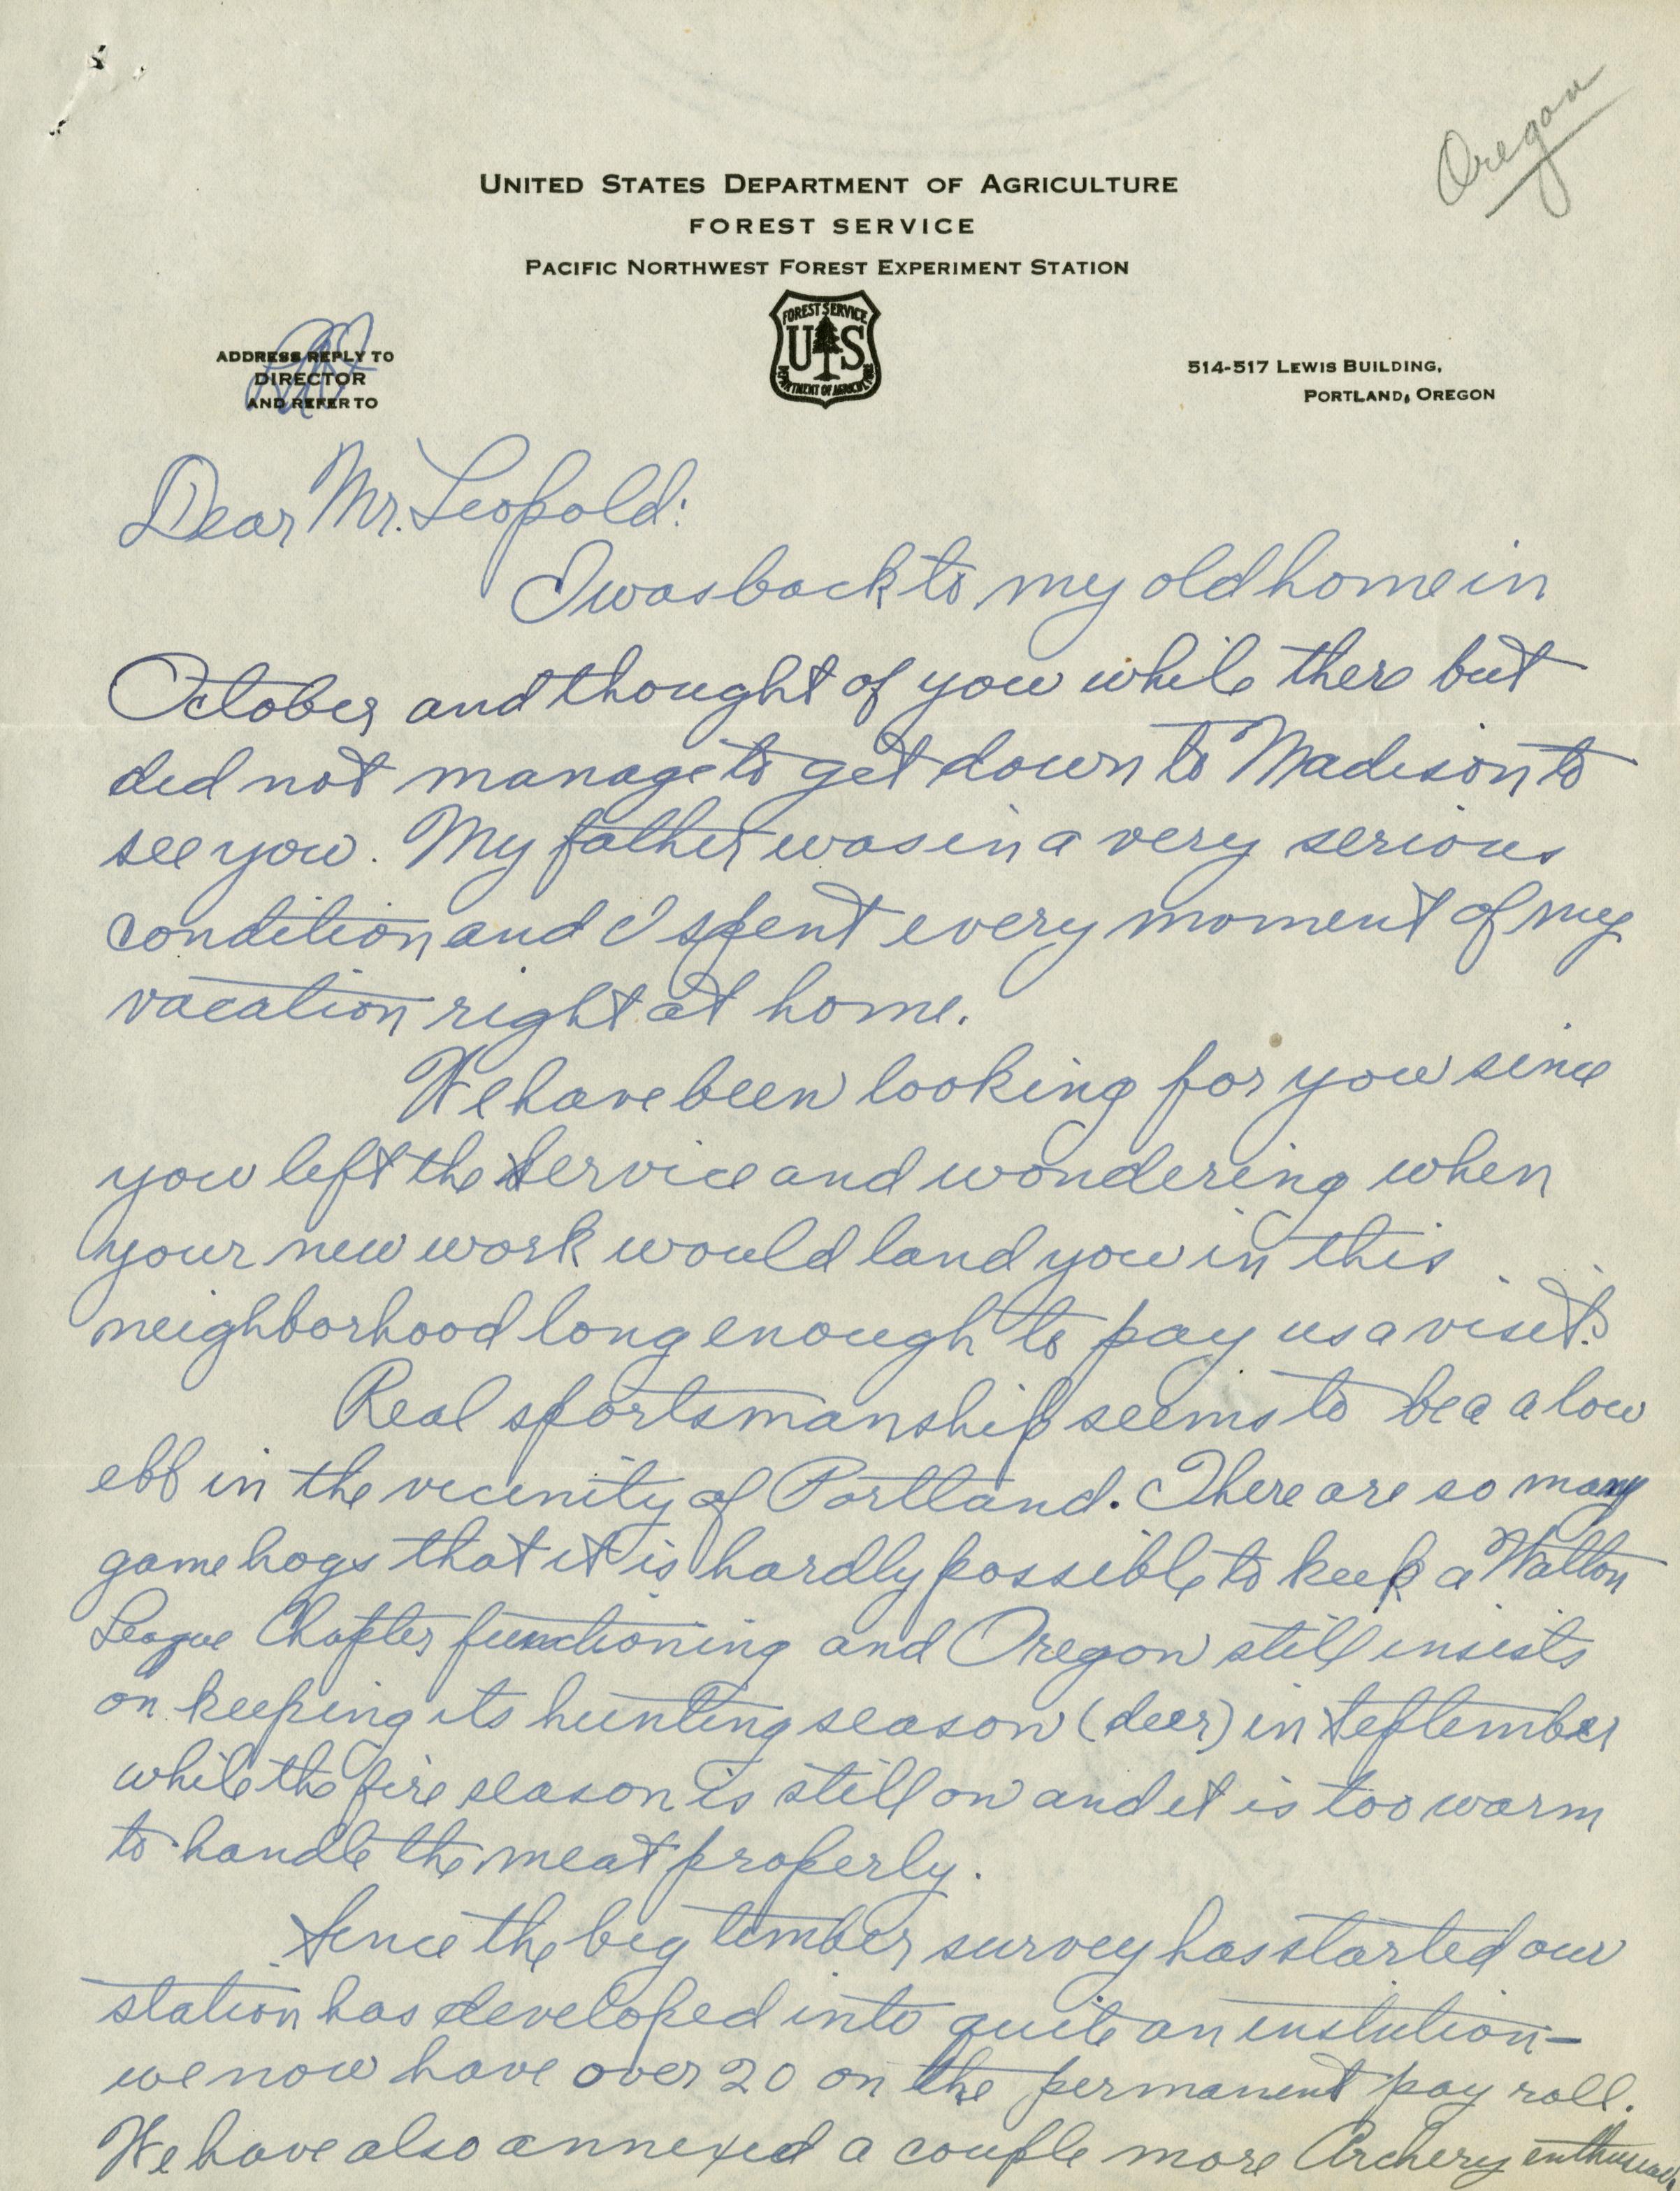 Oregon
UNITED STATES DEPARTMENT OF AGRICULTURE
FOREST SERVICE
PACIFIC NORTHWEST FOREST EXPERIMENT STATION
FOREST SERVICE
U S
DEPARTMENT OF AGRICULTURE
ADDRESS REPLY TO
DIRECTOR
AND REFER TO
514-517 LEWIS BUILDING,
PORTLAND, OREGON
Dear Mr. Leopold:
I was back to my old home in
October and thought of you while there but
did not manage to get down to Madison to
see you. My father was in a very serious
condition and I spent every moment of my
vacation right at home.
We have been looking for you since
you left the Service and wondering when
your new work would land you in this
neighborhood long enough to pay us a visit?
Real sportsmanship seems to be a a low
ebb in the vicinity of Portland. There are so many
game hogs that it is hardly possible to keep a Walton
League Chapter functioning and Oregon still insists
on keeping its hunting season (deer) in September
while the fire season is still on and it is too warm
to handle the meat properly.
Since the big timber survey has started our
station has developed into quite an instution—
we now have over 20 on the permanent pay roll.
We have also annexed a couple more Archery